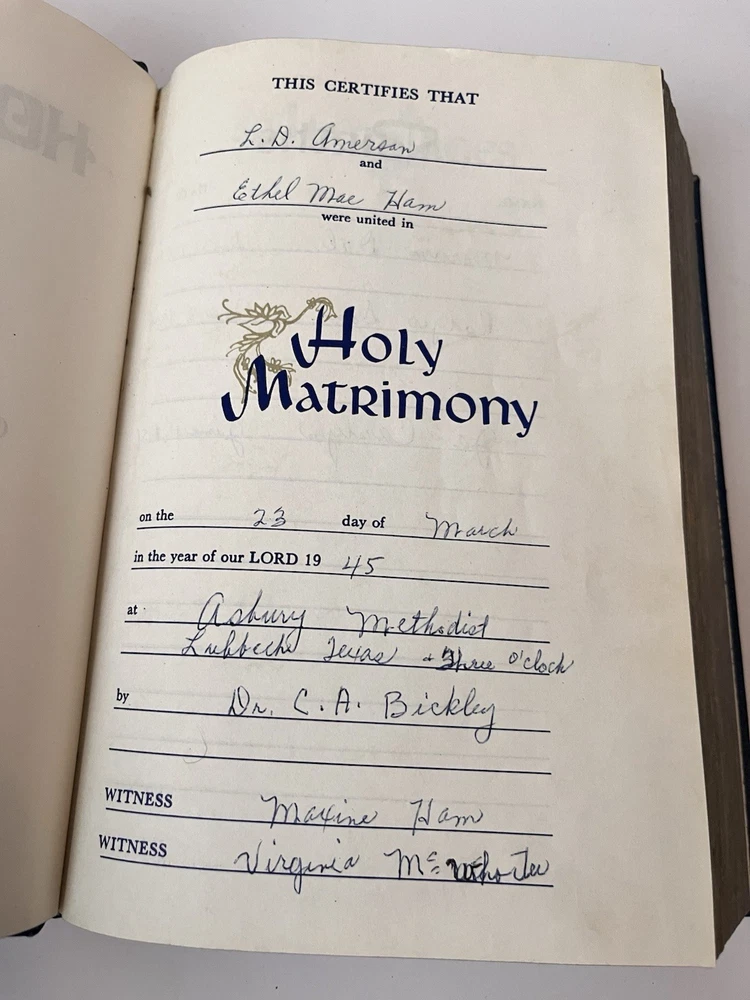 THIS CERTIFIES THAT
L. D. Amerson
and
Ethel Mae Ham
were united in
Holy
Matrimony
on the 23 day of March
in the year of our LORD 19 45
at Asbury Methodist
Texas Three O'clock
by Dr. C. A. Bickley
WITNESS Maxine Ham
WITNESS Virginia